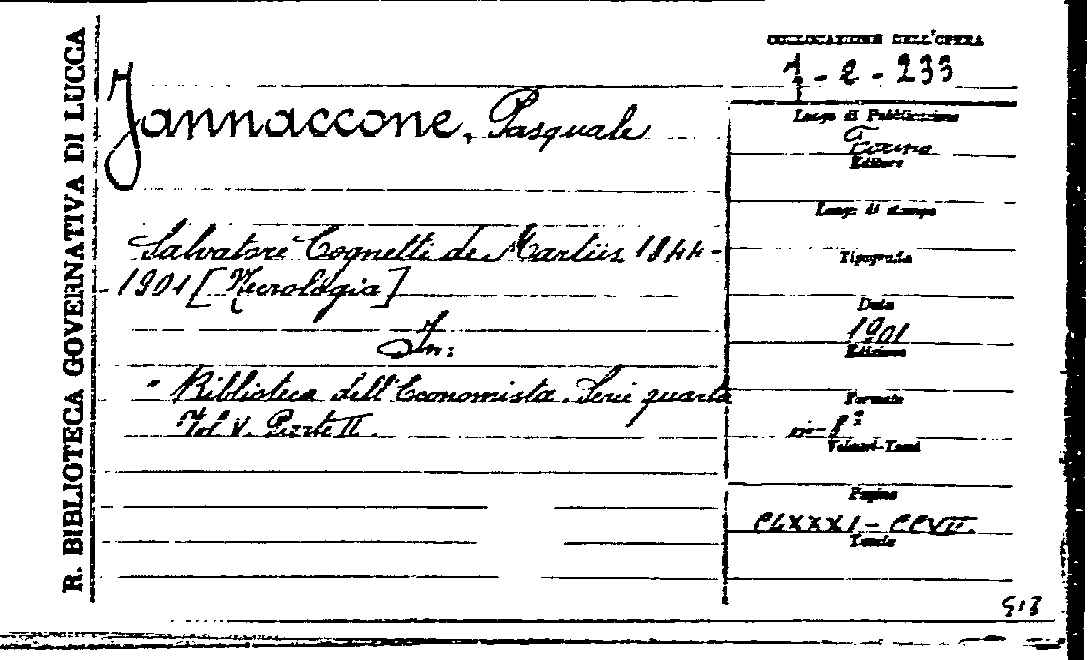 R. BIBLIOTECA GOVERNATIVA DI LUCCA
COLLOCAZIONE DELL'OPERA
1-2-233
Jannaccone, Pasquale
Luogo di Pubblicazione
Torino
Editore
Luogo di stampa
Salvatore Cognetti de Martiis 1844-
1901 [Necrologia]
Tipografia
Data
1901
In:
Edizione
- Biblioteca dell'Economista. Serie quarta
Vol. V. Parte II.
Formato
in-8º
Volumi-Tomi
Pagine
CLXXXI-CCVII
Tavole